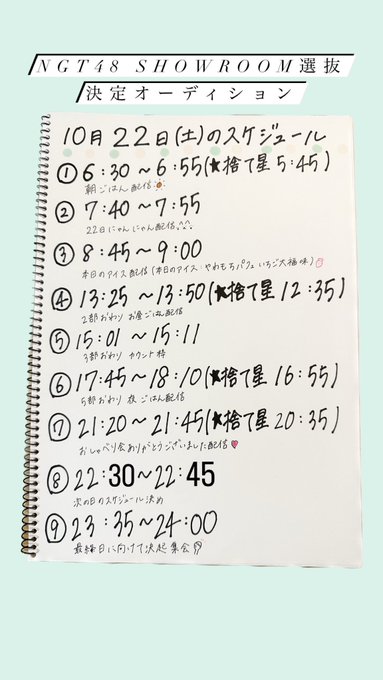 NGT48 SHOWROOM選抜
決定オーディション
10月22日(土)のスケジュール
① 6:30〜6:55(★捨て星 5:45)
朝ごはん配信
② 7:40〜7:55
22日にゃんにゃん配信
③ 8:45〜9:00
本日のアイス配信(本日のアイス:やわもちパフェいちご大福味)
④ 13:25〜13:50(★捨て星 12:35)
2部おわり お昼ごはん配信
⑤ 15:01〜15:11
3部おわり カウント枠
⑥ 17:45〜18:10(★捨て星 16:55)
5部おわり 夜ごはん配信
⑦ 21:20〜21:45(★捨て星 20:35)
おしゃべり会ありがとうございました配信
⑧ 22:30〜22:45
次の日のスケジュール決め
⑨ 23:35〜24:00
最終日に向けて決起集会